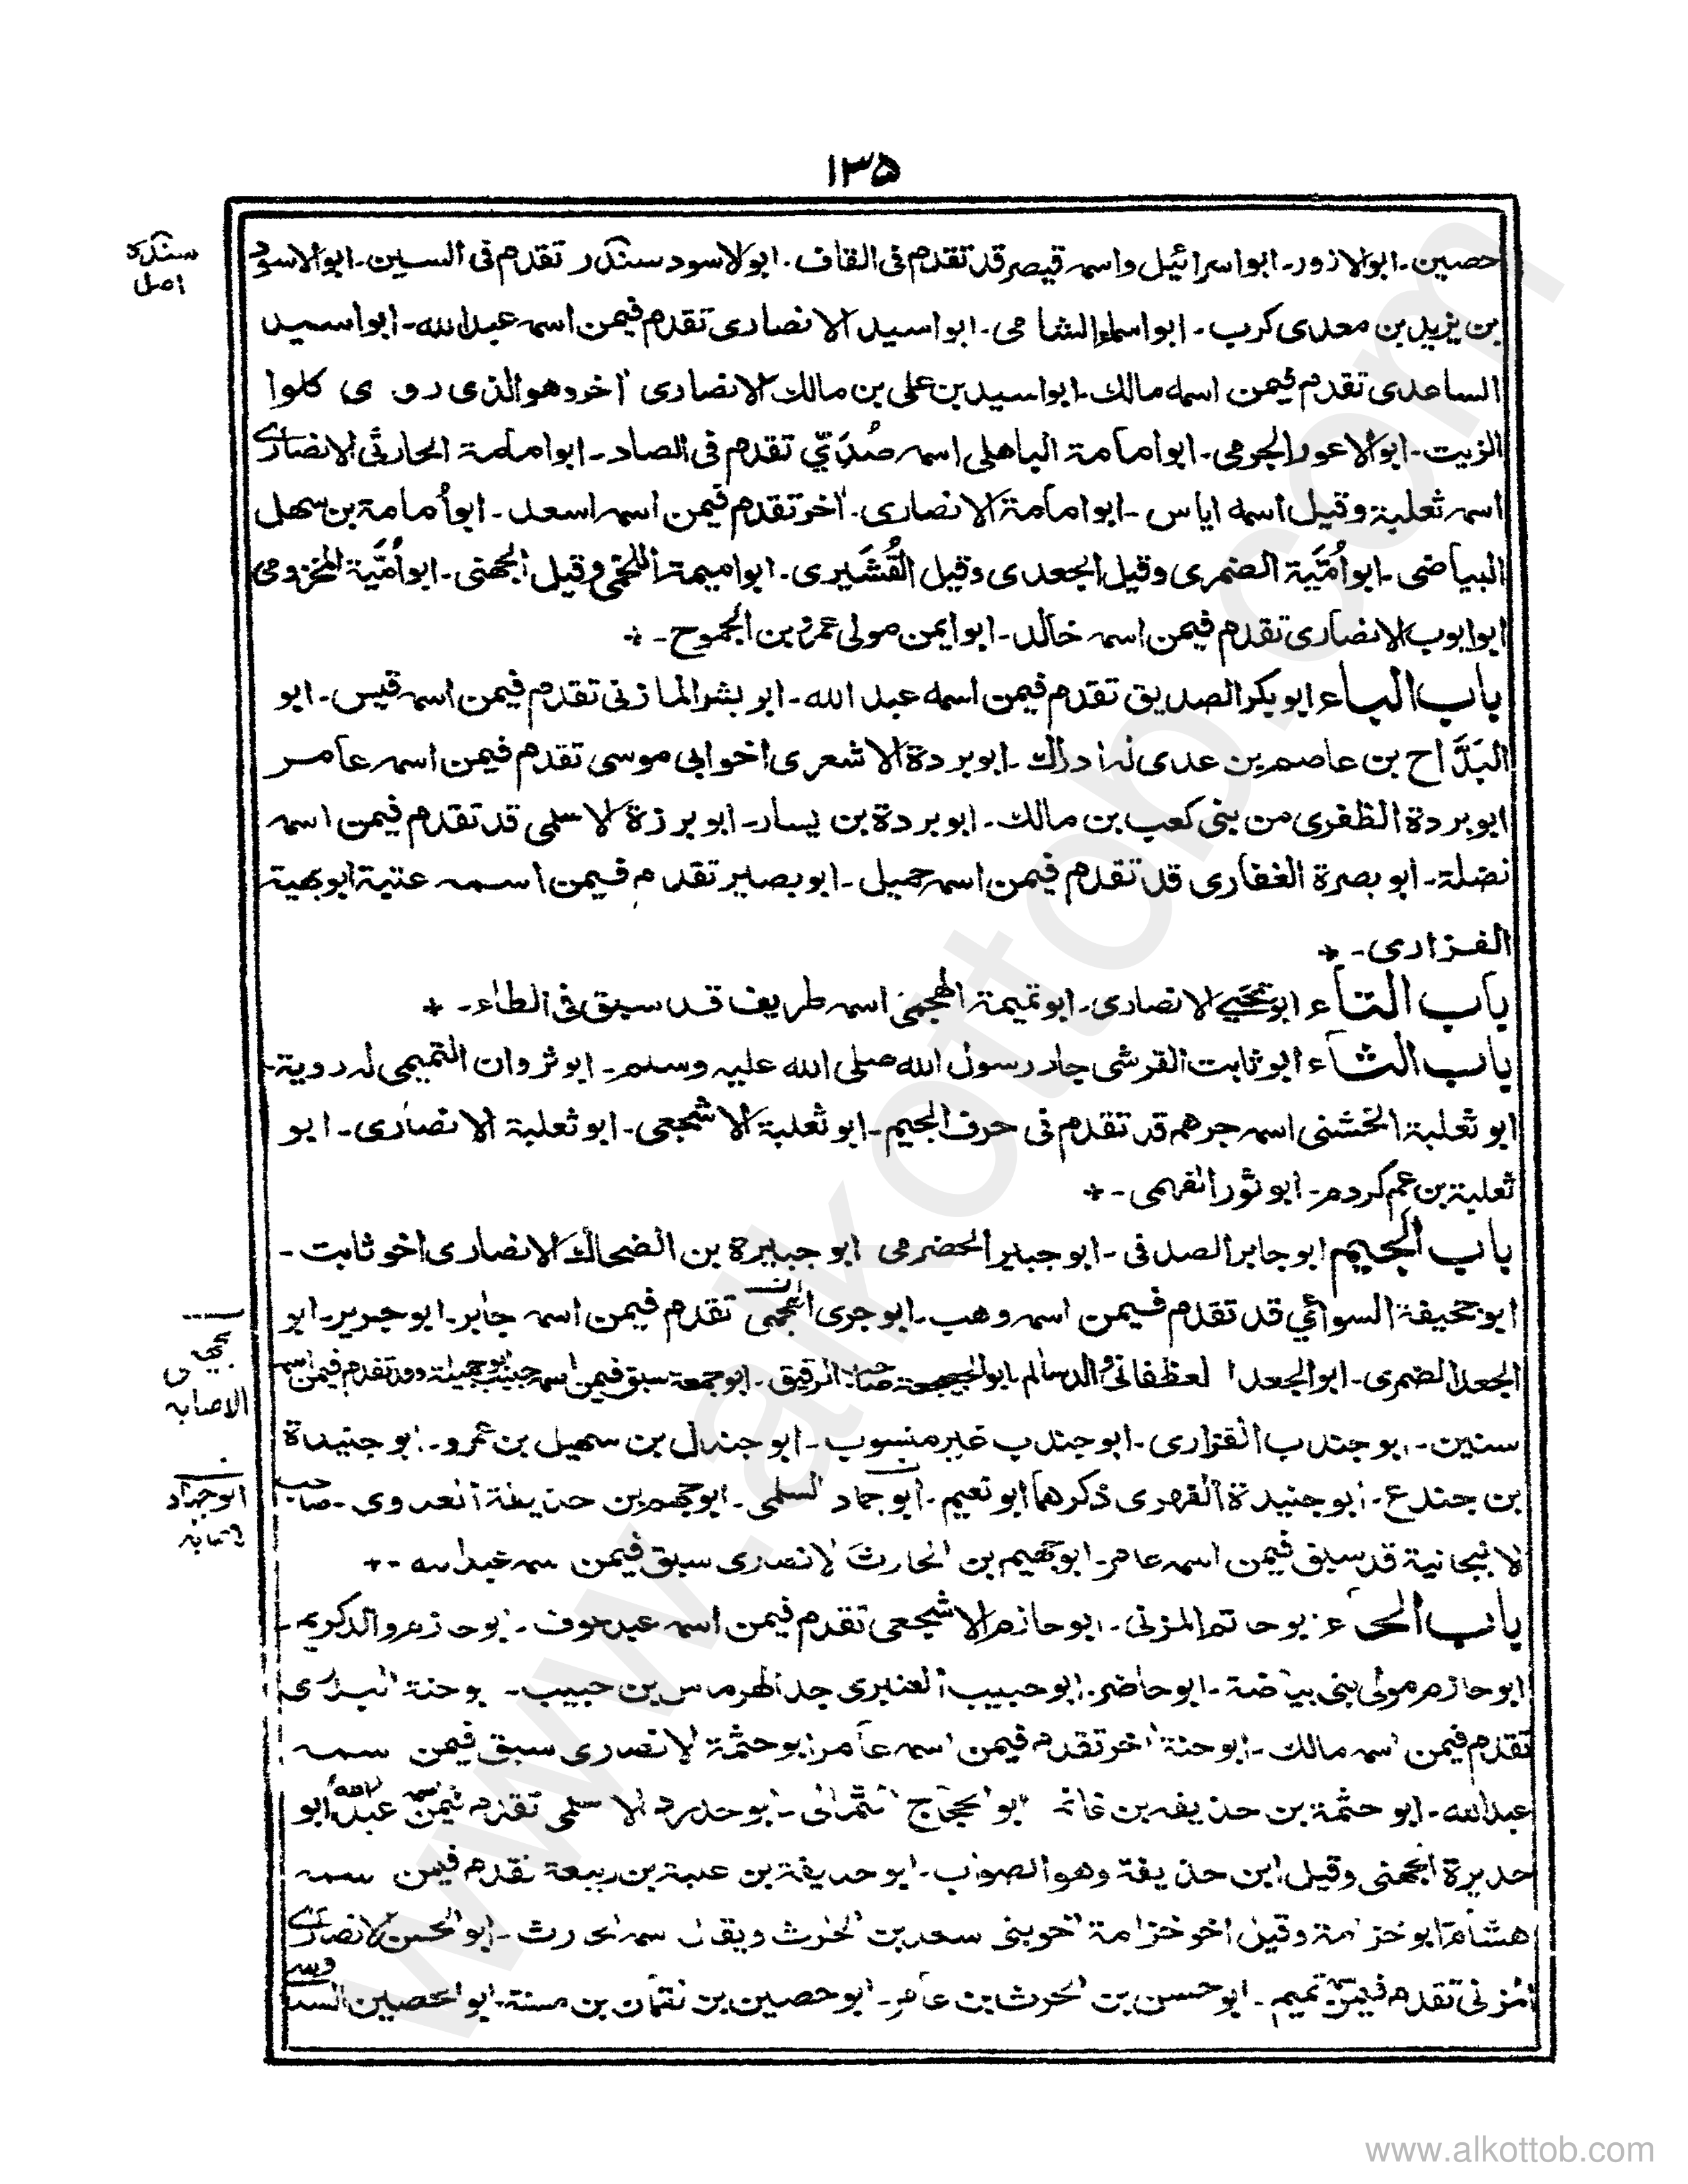 ١٣٥
حصين۔ ابو الازور۔ ابو اسرائيل واسمه قيصر قد تقدم فى القاف۔ ابو لاسود سندر تقدم فى السين۔ ابو الاسود
سندرة
اصل
بن يزيد بن معدى كرب۔ ابو اسماء الشامى۔ ابو اسيد الانصارى تقدم فيمن اسمه عبد الله۔ ابو اسيد
الساعدى تقدم فيمن اسمه مالك۔ ابو اسيد بن على بن مالك الانصارى اخر وهو الذى روى كلوا
الزيت۔ ابو الاعور الجرمى۔ ابو امامة الباهلى اسمه صُدَيّ تقدم فى الصاد۔ ابو امامة الحارثى الانصارى
اسمه ثعلبة وقيل اسمه اياس۔ ابو امامة الانصارى۔ اخر تقدم فيمن اسمه اسعد۔ ابو أمامة بن سهل
البياضى۔ ابو أمَيَّة الضمرى وقيل الجعدى وقيل القُشَيرى۔ ابو اميمة اللخمى وقيل الجهنى۔ ابو أمَيَّة المخزومى
ابو ايوب الانصارى تقدم فيمن اسمه خالد۔ ابو ايمن مولى عمرو بن الجموح۔ +
باب الباء ابو بكر الصديق تقدم فيمن اسمه عبد الله۔ ابو بشر المازنى تقدم فيمن اسمه قيس۔ ابو
البَدَّاح بن عاصم بن عدى له ادراك۔ ابو بردة الاشعرى اخو ابى موسى تقدم فيمن اسمه عامر
ابو بردة الظفرى من بنى كعب بن مالك۔ ابو بردة بن يسار۔ ابو برزة الاسلمى قد تقدم فيمن اسمه
نضلة۔ ابو بصرة الغفارى قد تقدم فيمن اسمه جميل۔ ابو بصير تقدم فيمن اسمه عتبة ابو بهية
الفزارى۔ +
باب التاء ابو تحيى الانصارى۔ ابو تميمة الهجيمى اسمه طريف قد سبق فى الطاء۔ +
باب الثاء ابو ثابت القرشى جار رسول الله صلى الله عليه وسلم۔ ابو ثروان التميمى له روية۔
ابو ثعلبة الخشنى اسمه جرهم قد تقدم فى حرف الجيم۔ ابو ثعلبة الاشجعى۔ ابو ثعلبة الانصارى۔ ابو
ثعلبة بن عم كردم۔ ابو ثور الفهمى۔ +
باب الجيم ابو جابر الصدفى۔ ابو جبير الحضرمى ابو جبيرة بن الضحاك الانصارى اخو ثابت۔
ابو جحيفة السوائي قد تقدم فيمن اسمه وهب۔ ابو جرى الهجيمى تقدم فيمن اسمه جابر۔ ابو جرير۔ ابو
الجعد الضمرى۔ ابو الجعد الغطفانى والد سالم۔ ابو الجيعة صاحب الرقيق۔ ابو جمعة سبق فيمن اسمه حبيب ابو جميلة وقد تقدم فيمن اسمه
الاصابه
سنين۔ ابو جندب الفزارى۔ ابو جندب غير منسوب۔ ابو جندل بن سهيل بن عمرو۔ ابو جنيدة
بن جندع۔ ابو جنيدة الفهرى ذكرهما ابو نعيم۔ ابو جماد السلمى۔ ابو جهم بن حذيفة العدوى۔ صاحب
ابو جهاد
الانبجانية قد سبق فيمن اسمه عامر۔ ابو جهيم بن الحارث الانصارى سبق فيمن اسمه عبد الله ۔+
باب الحاء ابو حاتم المزنى۔ ابو حازم الاشجعى تقدم فيمن اسمه عبد عوف۔ ابو حازم والد كريم۔
ابو حازم مولى بنى بياضة۔ ابو حاضر۔ ابو حبيب العنبرى جد الهرماس بن حبيب۔ ابو حنة البدرى
تقدم فيمن اسمه مالك۔ ابو حنة اخر تقدم فيمن اسمه عامر ابو حثمة الانصارى سبق فيمن اسمه
عبد الله۔ ابو حثمة بن حذيفه بن غانم ابو الحجاج الثمالى۔ ابو حدرد الاسلمى تقدم فيمن اسمه عبد الله ابو
حديرة الجهنى وقيل ابن حذيفة وهو الصواب۔ ابو حذيفة بن عتبة بن ربيعة تقدم فيمن اسمه
هشام ابو خزامة وقيل اخو خزامة اخو بنى سعد بن الحرث ويقال اسمه الحارث۔ ابو الحسن الانصارى
المزنى تقدم فيمن اسمه تميم۔ ابو حسن بن الحرث بن عامر۔ ابو حصين بن نقمان بن مسنة۔ ابو الحصين السدوسى
www.alkottob.com
www.alkottob.com